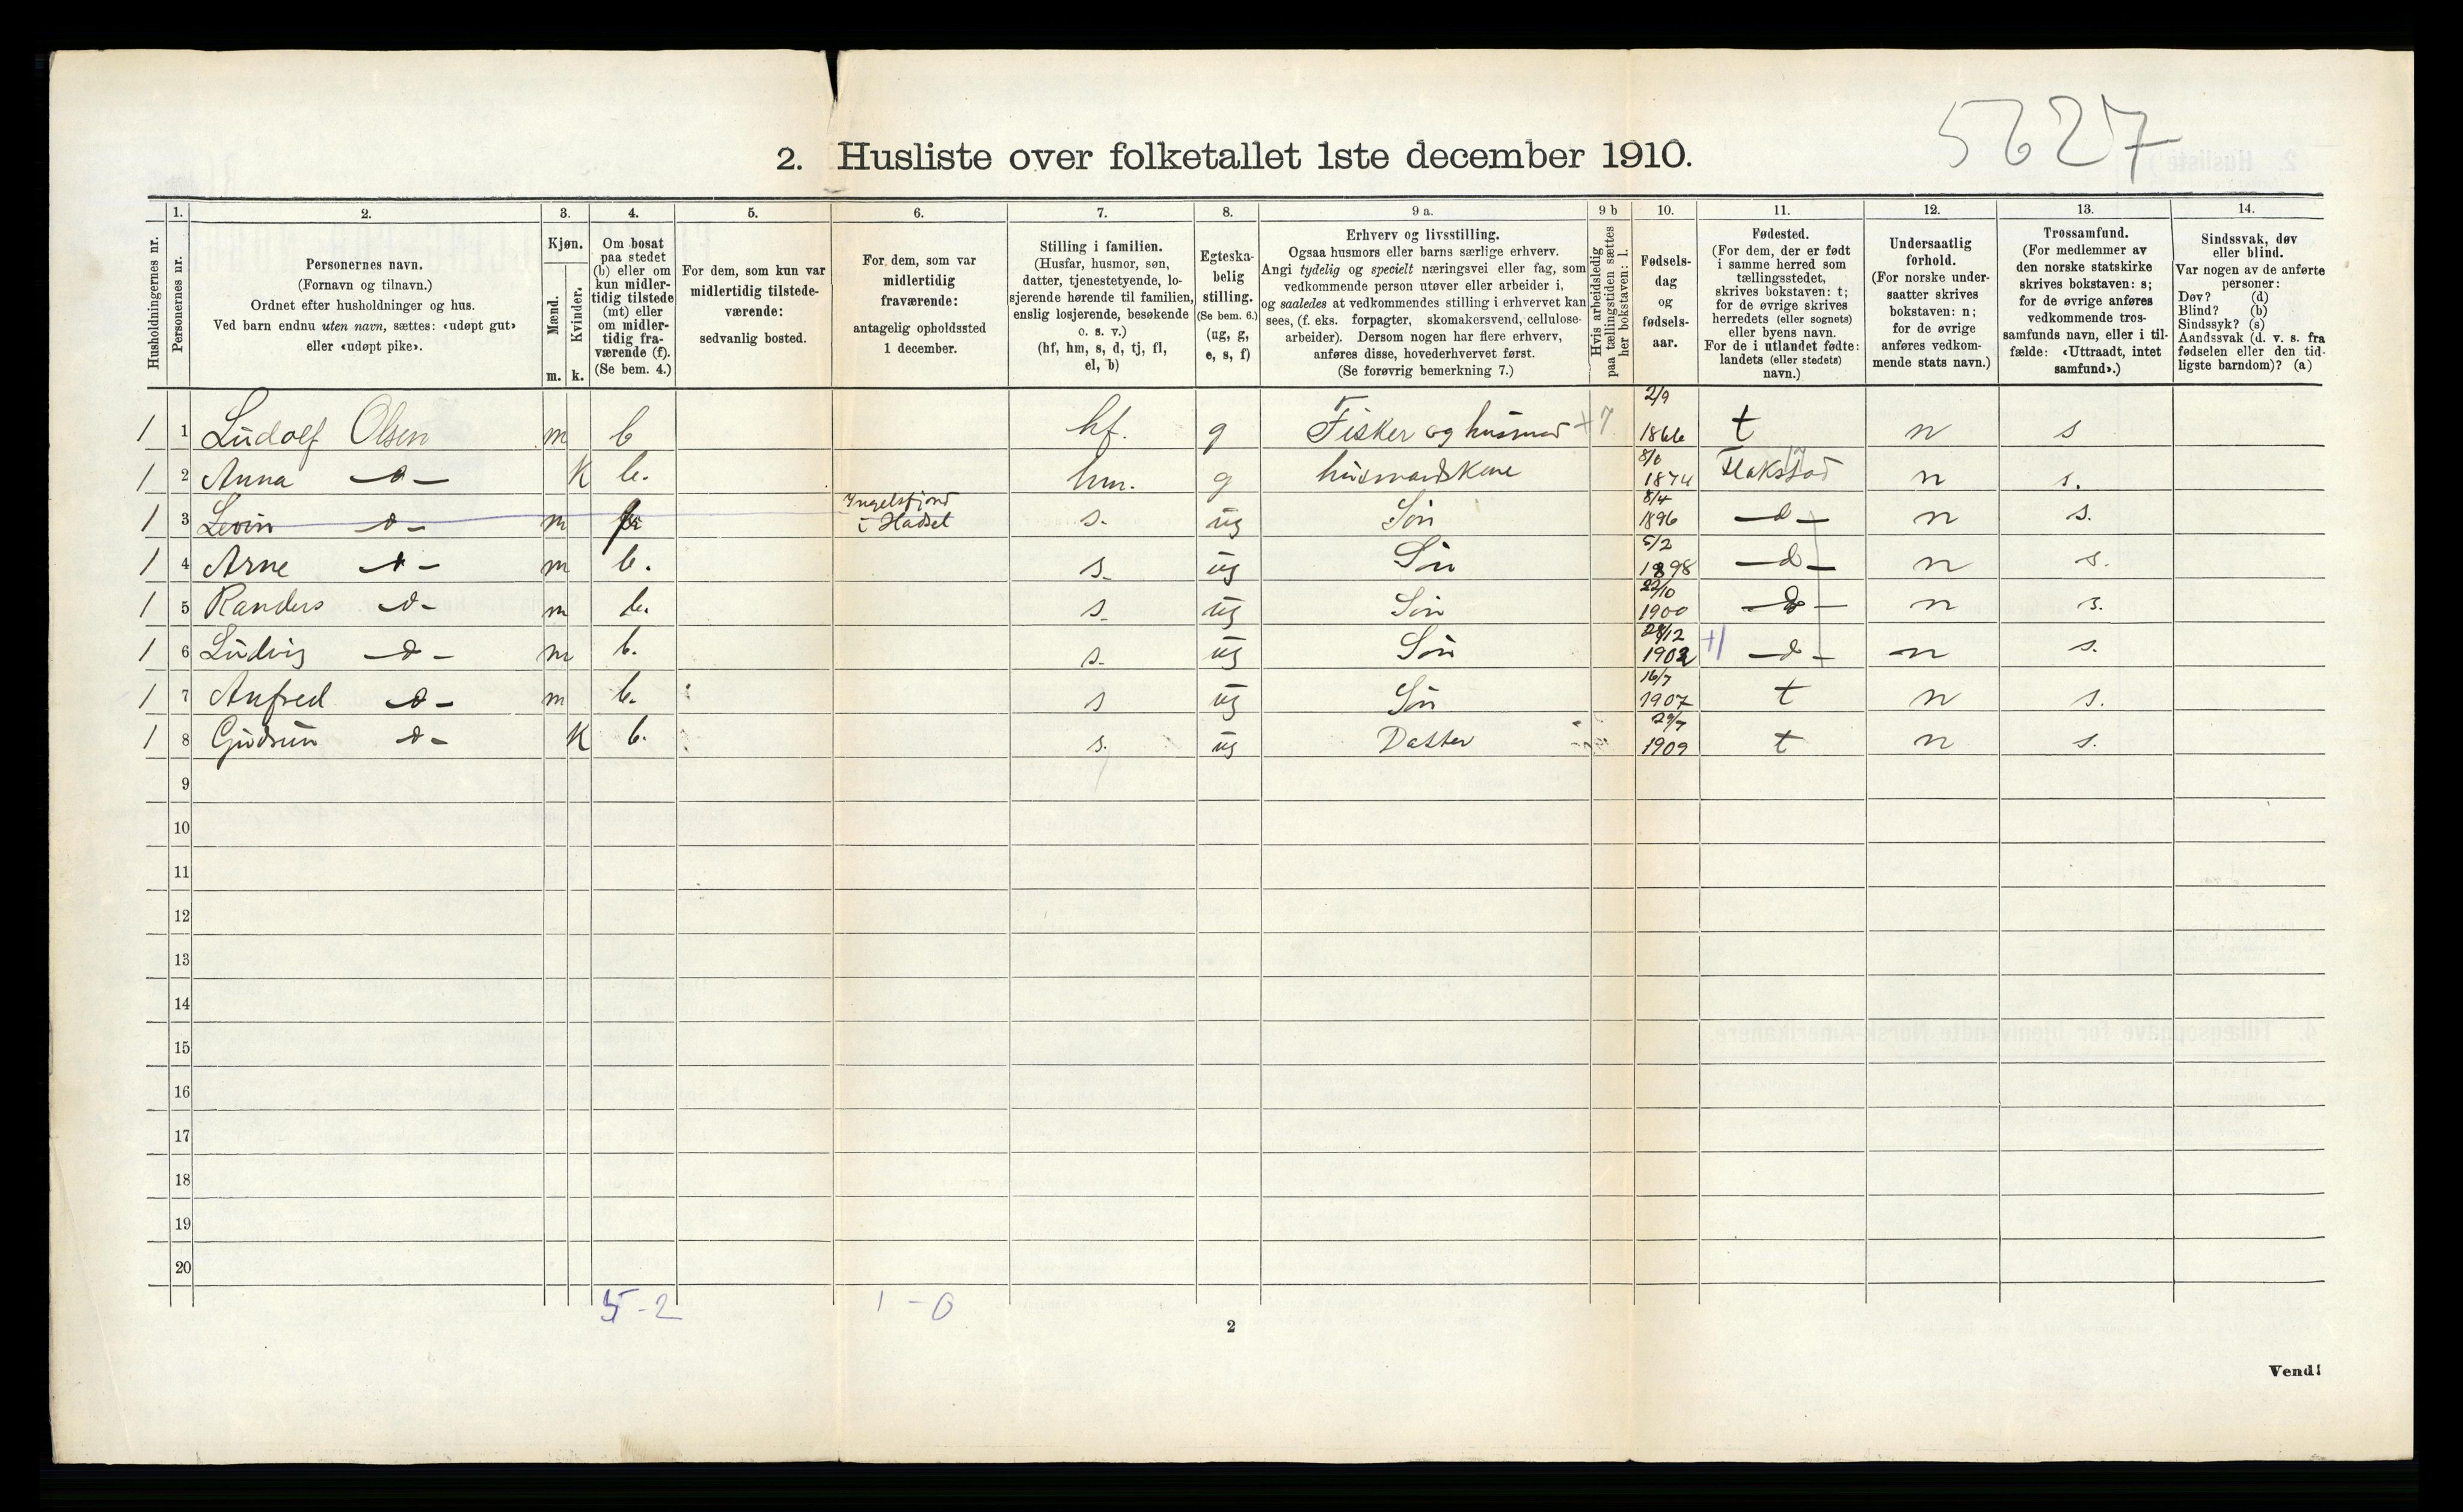 5627
2. Husliste over folketallet 1ste december 1910.
Husholdningernes nr.
1.
Personernes nr.
2.
Personernes navn.
(Fornavn og tilnavn.)
Ordnet efter husholdninger og hus.
Ved barn endnu uten navn, sættes: «udøpt gut»
eller «udøpt pike».
3.
Kjøn.
Mænd.
Kvinder.
m. k.
4.
Om bosat
paa stedet
(b) eller om
kun midler-
tidig tilstede
(mt) eller
om midler-
tidig fra-
værende (f).
(Se bem. 4.)
5.
For dem, som kun var
midlertidig tilstede-
værende:
sedvanlig bosted.
6.
For dem, som var
midlertidig
fraværende:
antagelig opholdssted
1 december.
7.
Stilling i familien.
(Husfar, husmor, søn,
datter, tjenestetyende, lo-
sjerende hørende til familien,
enslig losjerende, besøkende
o. s. v.)
(hf, hm, s, d, tj, fl,
el, b)
8.
Egteska-
belig
stilling.
(Se bem. 6.)
(ug, g,
e, s, f)
9 a.
Erhverv og livsstilling.
Ogsaa husmors eller barns særlige erhverv.
Angi tydelig og specielt næringsvei eller fag, som
vedkommende person utøver eller arbeider i,
og saaledes at vedkommendes stilling i erhvervet kan
sees, (f. eks. forpagter, skomakersvend, cellulose-
arbeider). Dersom nogen har flere erhverv,
anføres disse, hovederhvervet først.
(Se forøvrig bemerkning 7.)
9 b
Hvis arbeidsledig
paa tællingstiden sættes
her bokstaven: l.
10.
Fødsels-
dag
og
fødsels-
aar.
11.
Fødested.
(For dem, der er født
i samme herred som
tællingsstedet,
skrives bokstaven: t;
for de øvrige skrives
herredets (eller sognets)
eller byens navn.
For de i utlandet fødte:
landets (eller stedets)
navn.)
12.
Undersaatlig
forhold.
(For norske under-
saatter skrives
bokstaven: n;
for de øvrige
anføres vedkom-
mende stats navn.)
13.
Trossamfund.
(For medlemmer av
den norske statskirke
skrives bokstaven: s;
for de øvrige anføres
vedkommende tros-
samfunds navn, eller i til-
fælde: «Uttraadt, intet
samfund».)
14.
Sindssvak, døv
eller blind.
Var nogen av de anførte
personer:
Døv? (d)
Blind? (b)
Sindssyk? (s)
Aandssvak (d. v. s. fra
fødselen eller den tid-
ligste barndom)? (a)
1 1 Ludolf Olsen m b hf. g Fisker og husmand +7 2/9 1866 t n s
1 2 Anna -d- K b. hm. g husmandskone 1874 Flakstad n s.
1 3 Levin -d- m Ingelsfjord i Hadsel s. ug Søn 8/4 1896 -d- n s.
1 4 Arne -d- m b. s. ug Søn 5/2 1898 -d- n s.
1 5 Randers -d- m b. s. ug Søn 22/10 1900 -d- n s.
1 6 Ludvig -d- m b. s. ug Søn 28/12 1902 -d- n s.
1 7 Anfred -d- m b. s ug Søn 16/7 1907 t n s.
1 8 Gudrun -d- K b. s. ug Datter 29/7 1909 t n s.
9
10
11
12
13
14
15
16
17
18
19
20
5-2 1-0
2
Vend!